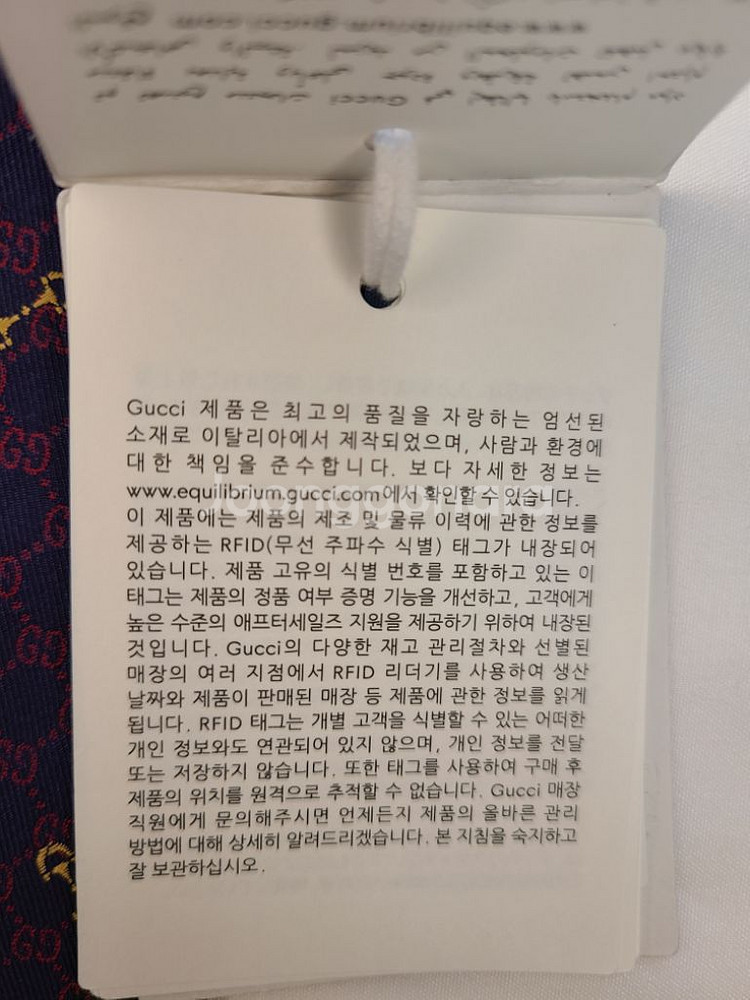 Gucci 제품은 최고의 품질을 자랑하는 엄선된
소재로 이탈리아에서 제작되었으며, 사람과 환경에
대한 책임을 준수합니다. 보다 자세한 정보는
www.equilibrium.gucci.com에서 확인할 수 있습니다.
이 제품에는 제품의 제조 및 물류 이력에 관한 정보를
제공하는 RFID(무선 주파수 식별) 태그가 내장되어
있습니다. 제품 고유의 식별 번호를 포함하고 있는 이
태그는 제품의 정품 여부 증명 기능을 개선하고, 고객에게
높은 수준의 애프터세일즈 지원을 제공하기 위하여 내장된
것입니다. Gucci의 다양한 재고 관리절차와 선별된
매장의 여러 지점에서 RFID 리더기를 사용하여 생산
날짜와 제품이 판매된 매장 등 제품에 관한 정보를 읽게
됩니다. RFID 태그는 개별 고객을 식별할 수 있는 어떠한
개인 정보와도 연관되어 있지 않으며, 개인 정보를 전달
또는 저장하지 않습니다. 또한 태그를 사용하여 구매 후
제품의 위치를 원격으로 추적할 수 없습니다. Gucci 매장
직원에게 문의해주시면 언제든지 제품의 올바른 관리
방법에 대해 상세히 알려드리겠습니다. 본 지침을 숙지하고
잘 보관하십시오.